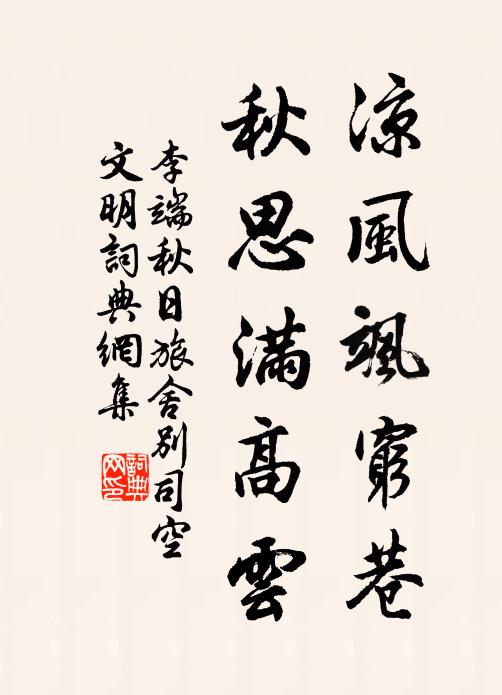 涼風颯窮巷
秋思滿高雲
李端秋日旅舍別司空
文明詞典網集
詞典
网印